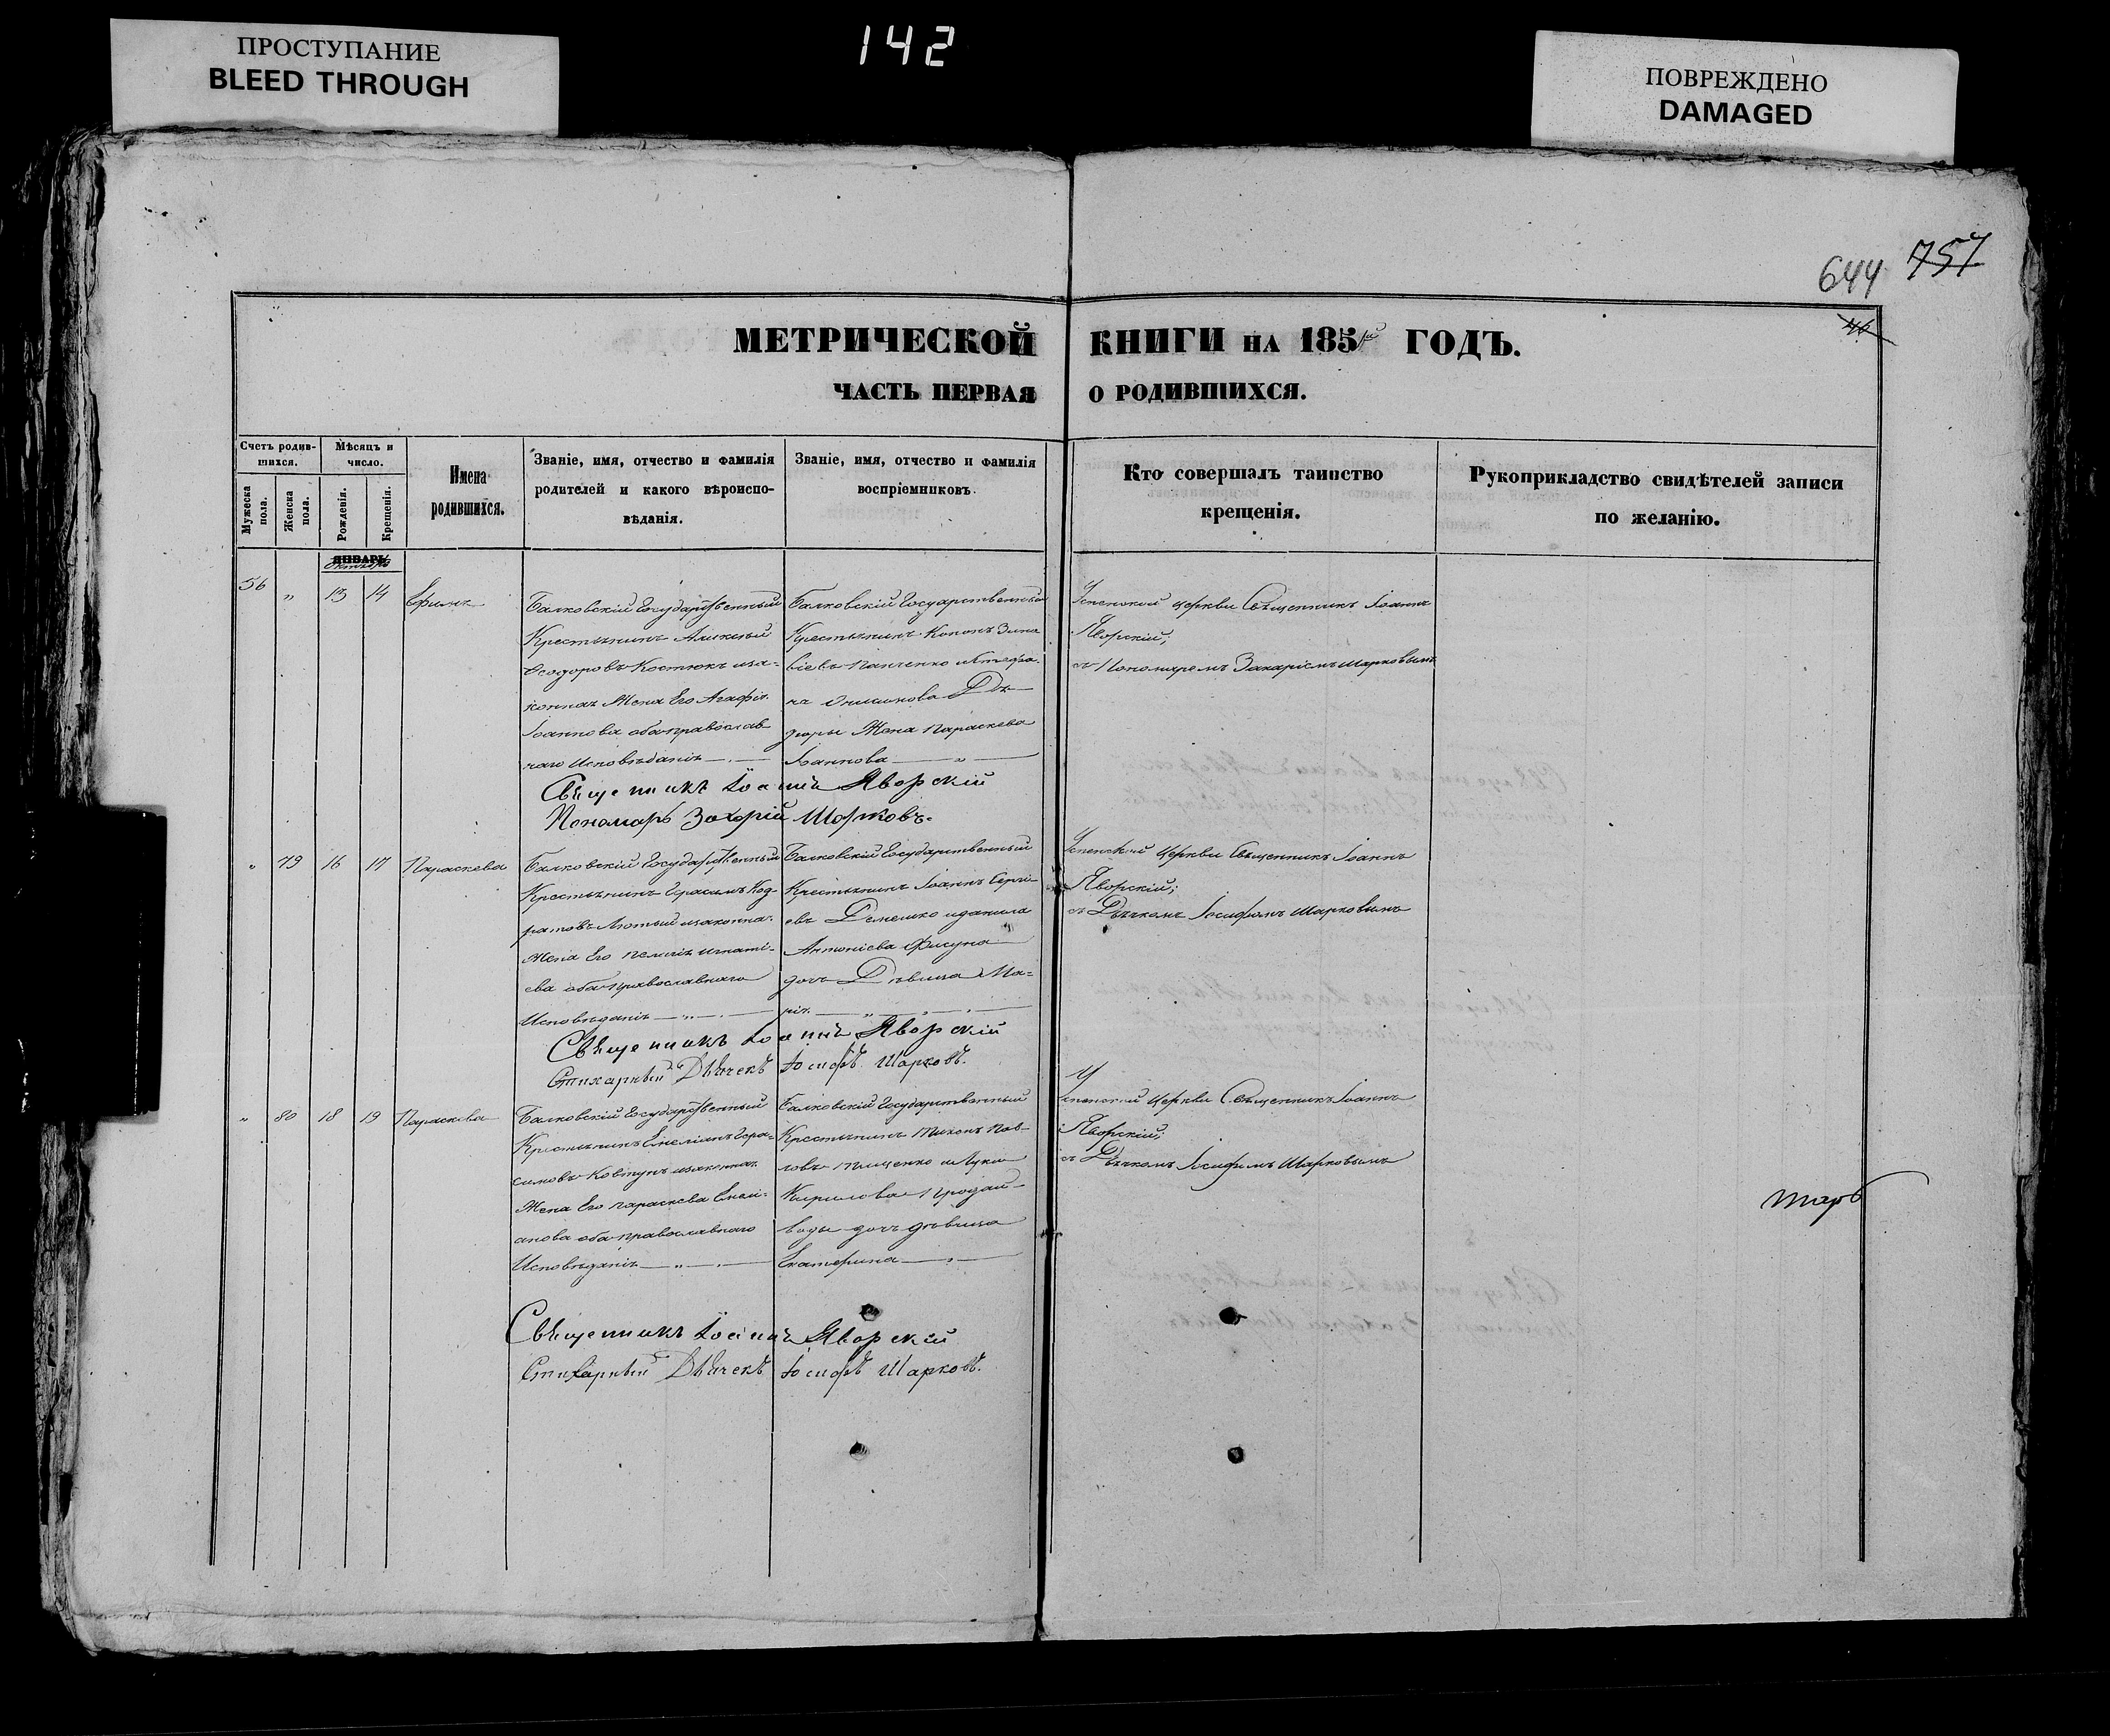 ПРОСТУПАНИЕ
BLEED THROUGH
142
ПОВРЕЖДЕНО
DAMAGED
644 757
МЕТРИЧЕСКОЙ КНИГИ НА 185 ГОДЪ.
ЧАСТЬ ПЕРВАЯ О РОДИВШИХСЯ.
Счетъ родив-
шихся.
Мужеска пола.
Женска пола.
Мѣсяцъ и
число.
Рожденія.
Крещенія.
Имена
родившихся.
Званіе, имя, отчество и фамилія
родителей и какого вѣроиспо-
вѣданія.
Званіе, имя, отчество и фамилія
воспріемниковъ.
Кто совершалъ таинство
крещенія.
Рукоприкладство свидѣтелей записи
по желанію.
ЯНВАРЬ
Октябрь
56 " 13 14 Ефимъ
Балковскій Государственный
Крестьянинъ Алексѣй
Ѳеодоровъ Костюкъ иза-
конная Жена Его Агафія
Іоаннова оба православ
наго Исповѣданія
Балковскій Государственный
Крестьянинъ Кононъ Зина
віевъ Панченко
Жена Параскева
Іоаннова
Успенской церкви Священникъ Іоаннъ
Яворскій;
съ Пономаремъ Захаріемъ Шарковымъ
Священникъ Іоаннъ Яворскій
Пономарь Захарій Шарковъ.
" 79 16 17 Параскева
Балковскій Государственный
Крестьянинъ Герасимъ Код-
ратовъ Лютый изаконная
Жена Его Пелагія Игнаті-
ева оба православнаго
Исповѣданія
Балковскій Государственный
Крестьянинъ Іоаннъ Сергі-
евъ Демешко идания
Антоніева Фисуна
дочь Дѣвица Ма-
рія
Успенской церкви Священникъ Іоаннъ
Яворскій;
съ Дьячкомъ Іосифомъ Шарковымъ
Священникъ Іоаннъ Яворскій
Стихарный Дьячекъ Іосифъ Шарковъ.
" 80 18 19 Параскева
Балковскій Государственный
Крестьянинъ Емеліанъ Гера-
симовъ Ковтунъ изаконная
Жена Его Параскева Емелі-
анова оба православнаго
Исповѣданія
Балковскій Государственный
Крестьянинъ Тихонъ Пав-
ловъ Тищенко иЛуки
Кирилова Продай-
воды дочь дѣвица
Екатерина
Успенской церкви Священникъ Іоаннъ
Яворскій;
съ Дьячкомъ Іосифомъ Шарковымъ
Священникъ Іоаннъ Яворскій
Стихарный Дьячекъ Іосифъ Шарковъ.